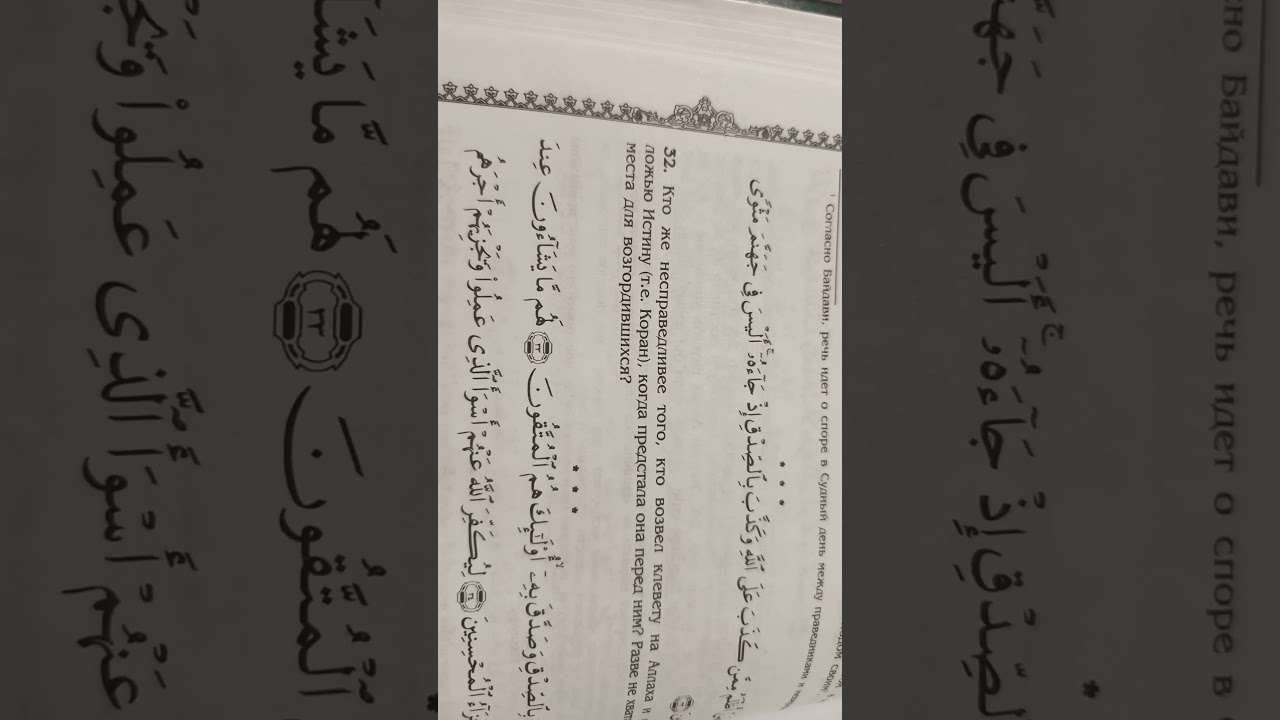 ¹ Согласно Байдави, речь идет о споре в Судный день между праведниками и
* * *
مِمَّن كَذَبَ عَلَى ٱللَّهِ وَكَذَّبَ بِٱلصِّدْقِ إِذْ جَآءَهُۥٓ ۚ أَلَيْسَ فِى جَهَنَّمَ مَثْوًى
32. Кто же несправедливее того, кто возвел клевету на Аллаха и
ложью Истину (т.е. Коран), когда предстала она перед ним? Разве не
места для возгордившихся?
* * *
بِٱلصِّدْقِ وَصَدَّقَ بِهِۦٓ ۙ أُو۟لَـٰٓئِكَ هُمُ ٱلْمُتَّقُونَ ٣٣ لَهُم مَّا يَشَآءُونَ عِندَ
ٱلْمُحْسِنِينَ ٣٤ لِيُكَفِّرَ ٱللَّهُ عَنْهُمْ أَسْوَأَ ٱلَّذِى عَمِلُوا۟ وَيَجْزِيَهُمْ أَجْرَهُم